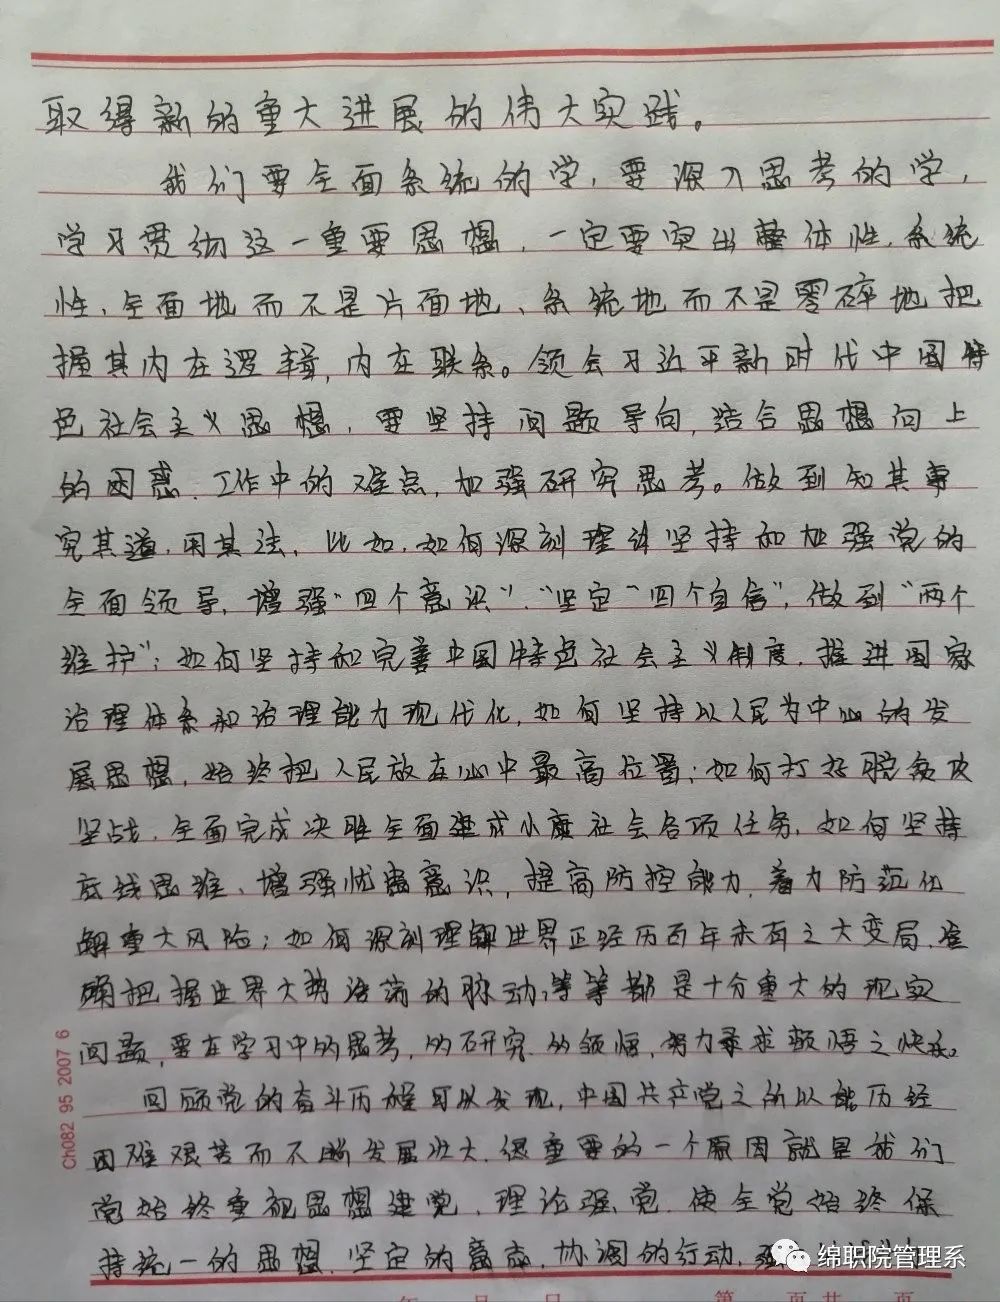 取得新的重大进展的伟大实践。
我们要全面系统的学，要深入思考的学，
学习贯彻这一重要思想，一定要突出整体性、系统
性、全面地而不是片面地、系统地而不是零碎地把
握其内在逻辑，内在联系。领会习近平新时代中国特
色社会主义思想，要坚持问题导向，结合思想向上
的困惑、工作中的难点，加强研究思考。做到知其事
究其道，用其法，比如，如何深刻理解坚持和加强党的
全面领导，增强“四个意识”、“坚定“四个自信”，做到“两个
维护”；如何坚持和完善中国特色社会主义制度，推进国家
治理体系和治理能力现代化，如何坚持以人民为中心的发
展思想，始终把人民放在心中最高位置；如何打好脱贫攻
坚战，全面完成决胜全面建成小康社会各项任务，如何坚持
底线思维、增强忧患意识，提高防控能力，着力防范化
解重大风险；如何深刻理解世界正经历百年未有之大变局，准
确把握世界大势浩荡的脉动，等等都是十分重大的现实
问题，要在学习中的思考，的研究、的领悟，努力寻求顿悟之快乐。
回顾党的奋斗历程可以发现，中国共产党之所以能历经
困难艰苦而不断发展壮大，很重要的一个原因就是我们
党始终重视思想建党，理论强党，使全党始终保
持统一的思想，坚定的意志，协调的行动，强
Ch082 95 2007 6
绵职院管理系
年 月 日 第 页共 页